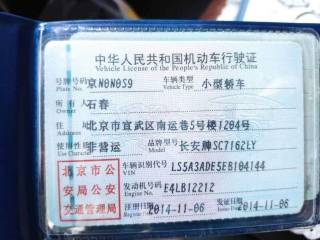 中华人民共和国机动车行驶证
Vehicle License of the People's Republic of China
号牌号码 京N0N0S9 车辆类型 小型轿车
Plate No. Vehicle Type
所有人 石春
住址 北京市宣武区南运巷5号楼1204号
使用性质 非营运 品牌型号 长安牌SC7162LY
北京市公安局公安交通管理局
车辆识别代号 LS5A3ADE5EB104144
VIN
发动机号码 E4LB12212
注册日期 2014-11-06 发证日期 2014-11-06